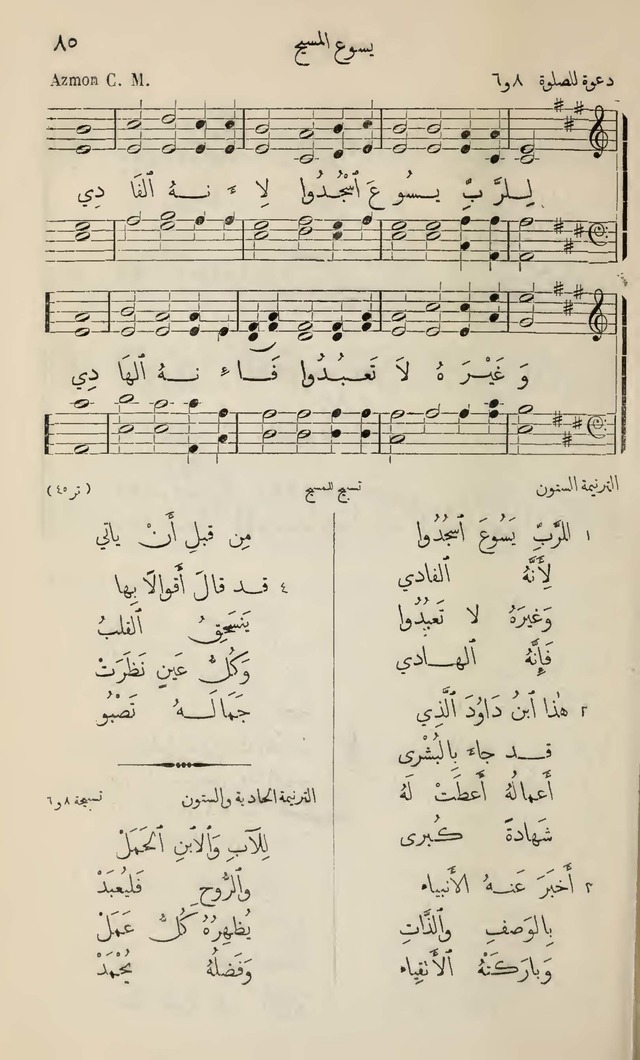 ٨٥
يسوع المسيح
Azmon C. M.
دعوة للصلوة ٨ و٦
لِـلرَّبِّ يـسُوعَ ٱسْجُدُوا لِاَ نـهُ ٱلفَا دِي
وَ غَيْرَهُ لَا تَعـبُدُوا فَـاِ نـهُ ٱلهَا دِي
الترنيمة الستون
تسبيح للمسيح
( تر ٤٥ )
١ للرَّبِّ يَسُوعَ ٱسجُدُوا
لِأَنَّهُ ٱلفادي
وَغيرَهُ لا تَعبُدُوا
فَإِنَّهُ ٱلهـادي
٢ هٰذا ٱبنُ دَاوُدَ ٱلَّذِي
قـد جاءَ بِالبُشْرى
أَعمالُهُ أَعطَتْ لَهُ
شَهادةً كُبرى
٣ أَخبَرَ عَنـهُ الأَنبياء
بِالوَصفِ وٱلذَّاتِ
وَبارَكَتْهُ ٱلأَتقِياء
مِن قبلِ أَنْ ياتي
٤ قـد قالَ أَقوالًا بِها
يَنسَحِقُ ٱلقلبُ
وَكُلُّ عَينٍ نَظَرَتْ
جَمَالَـهُ تَصْبُو
الترنيمة الحادية والستون
تسبيحة ٨ و٦
لِلآبِ وَٱلٱبنِ ٱلحَمَلْ
وٱلرُّوحِ فَليُعبَدْ
يُظهِرُهُ كُلُّ عَمَلْ
وَفَضلُهُ يُحْمَدْ